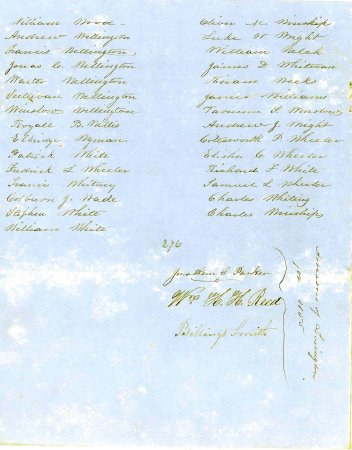 William Wood
Andrew Wellington
Francis Wellington
Jonas C. Wellington
Walter Wellington
Sullivan Wellington
Winslow Wellington
Royall B. Willis
Elbridge Wyman
Patrick White
Fredrick L Wheeler
Francis Whitney
Coburn J. Wade
Stephen White
William White
Oliver N Winship
Luke W Wright
William Welsh
James D Whitman
Hiram Weeks
James Williams
F Winslow
Andrew J Wright
Cotesworth P. Wheeler
Elisha C. Wheeler
Richard F White
Samuel L Wheeler
Charles Whiting
Charles Winships
276
Jonathan S. Parker
Wm H. H. Reed
Billings Smith
Assessors of Lexington
1855